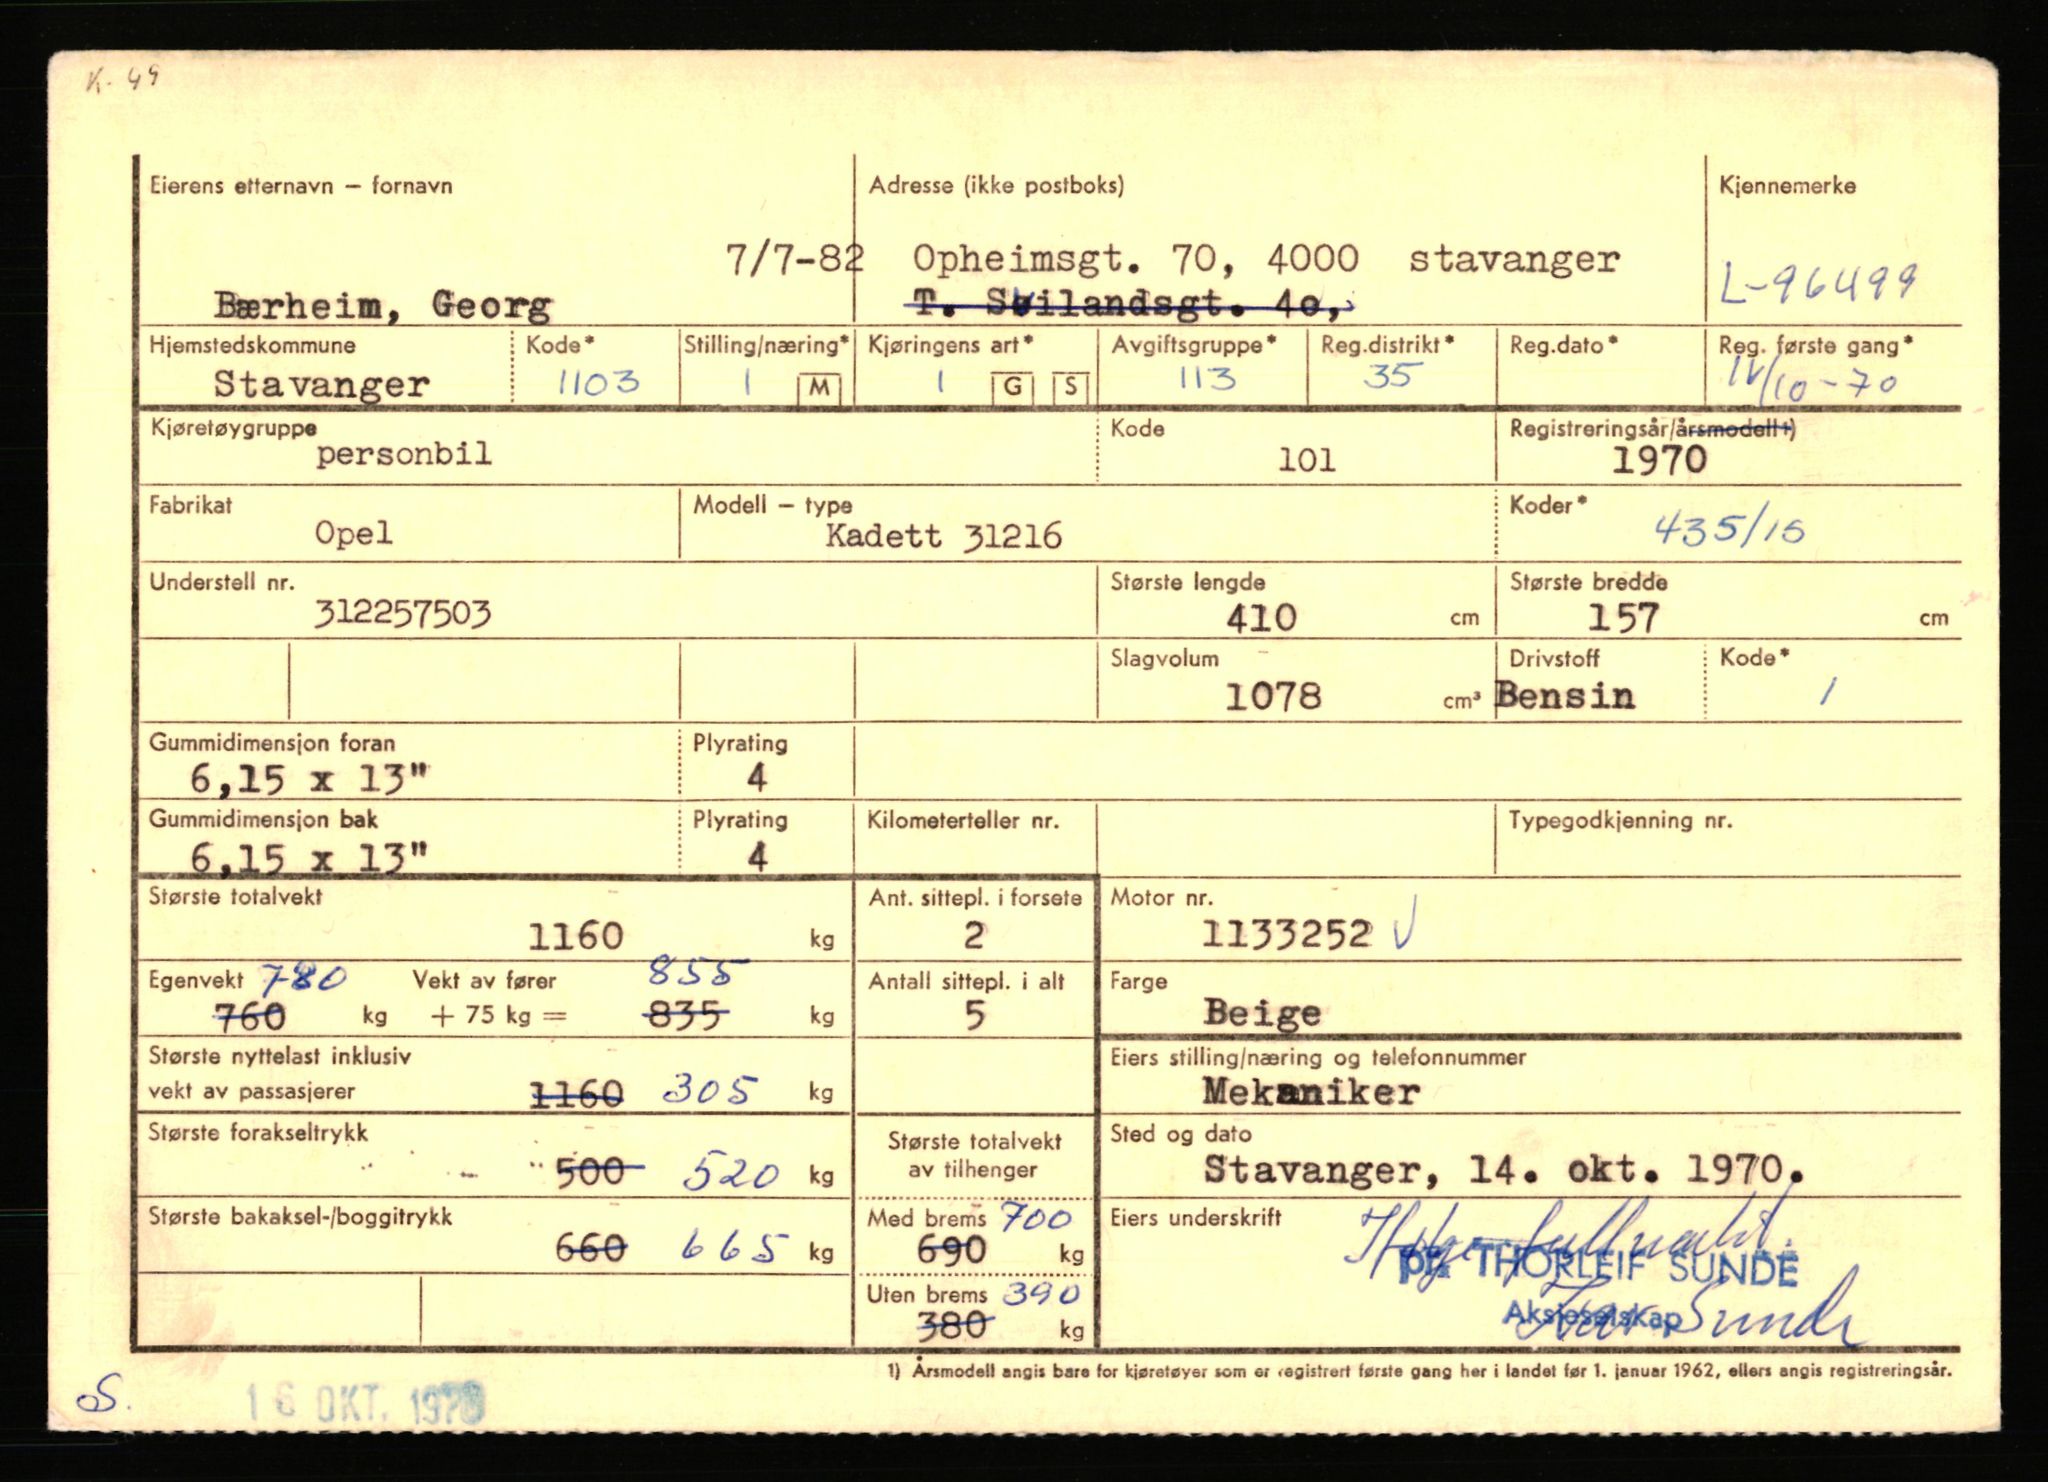 K-49
Eierens etternavn – fornavn Adresse (ikke postboks) Kjennemerke
7/7-82 Opheimsgt. 70, 4000 stavanger L-96499
Bærheim, Georg T. Søilandsgt. 40,
Hjemstedskommune Kode* Stilling/næring* Kjøringens art* Avgiftsgruppe* Reg.distrikt* Reg.dato* Reg. første gang*
Stavanger 1103 1 M 1 G S 113 35 /10-70
Kjøretøygruppe Kode Registreringsår/årsmodell1)
personbil 101 1970
Fabrikat Modell – type Koder*
Opel Kadett 31216 435/15
Understell nr. Største lengde Største bredde
312257503 410 cm 157 cm
Slagvolum Drivstoff Kode*
1078 cm³ Bensin 1
Gummidimensjon foran Plyrating
6,15 x 13" 4
Gummidimensjon bak Plyrating Kilometerteller nr. Typegodkjenning nr.
6,15 x 13" 4
Største totalvekt Ant. sittepl. i forsete Motor nr.
1160 kg 2 1133252
Egenvekt 780 Vekt av fører 855 Antall sittepl. i alt Farge
760 kg + 75 kg = 835 kg 5 Beige
Største nyttelast inklusiv Eiers stilling/næring og telefonnummer
vekt av passasjerer 1160 305 kg Mekaniker
Største forakseltrykk Største totalvekt Sted og dato
500 520 kg av tilhenger Stavanger, 14. okt. 1970.
Største bakaksel-/boggitrykk Med brems 700 Eiers underskrift
660 665 kg 690 kg pr. THORLEIF SUNDE
Uten brems 390 Aksjeselskap
380 kg Sunde
1) Årsmodell angis bare for kjøretøyer som er registrert første gang her i landet før 1. januar 1962, ellers angis registreringsår.
S. 16 OKT. 1970